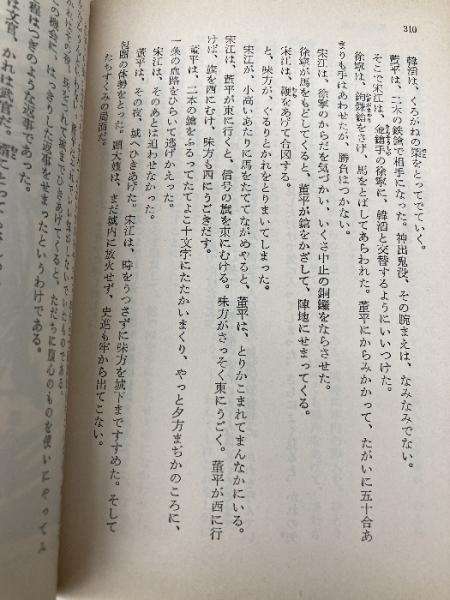 310
韓滔は、くろがねの槊をとってでていく。
董平は、二本の鉄鎗で相手になった。神出鬼没、その腕まえは、なみなみでない。
そこで宋江は、金鎗手の徐寧に、韓滔と交替するようにいいつけた。
徐寧は、鉤鎌鎗をさげ、馬をとばしてあらわれた。董平にからみかかって、たがいに五十合あ
まりも手はあわせたが、勝負はつかない。
宋江は、徐寧のからだを気づかい、いくさ中止の銅鑼をならさせた。
徐寧が馬をもどしてくると、董平が鎗をかざして、陣地にせまってくる。
宋江は、鞭をあげて合図する。
と、味方が、ぐるりとかれをとりまいてしまった。
宋江が、小高いあたりに馬をたててながめやると、董平は、とりかこまれてまんなかにいる。
宋江は、董平が東に行くと、信号の旗を東にむける。味方がさっそく東にうごく。董平が西に行
けば、旗を西にむけ、味方も西にうごきだす。
董平は、二本の鎗をふるってたてよこ十文字にたたかいまくり、やっと夕方まぢかのころに、
一条の血路をひらいて逃げかえった。
宋江は、そのあとは追わせなかった。
董平は、その夜、城へひきあげた。宋江は、時をうつさずに味方を城下まですすめた。そして
包囲の体勢をとった。顧大嫂は、まだ城内に放火せず、史進も牢から出てこない。
たちすくみの局面だ。
の機会に、はっきりした返事をせまったというわけである。
ひきあげてくると、ただちに腹心のものを使いにやってみ
程はつぎのような返事であった。
は文官、かれは武官だ。